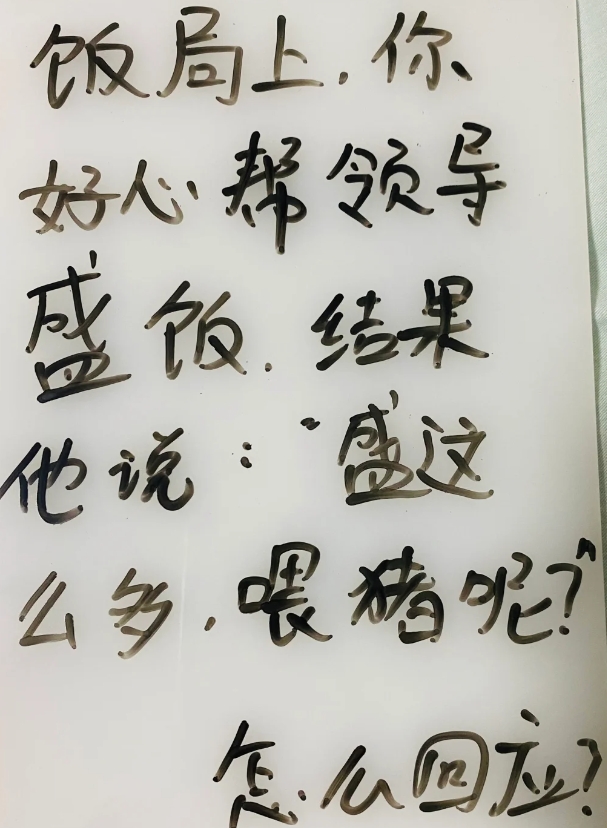 饭局上,你
好心帮领导
盛饭.结果
他说:“盛这
么多,喂猪呢?”
怎么回应?